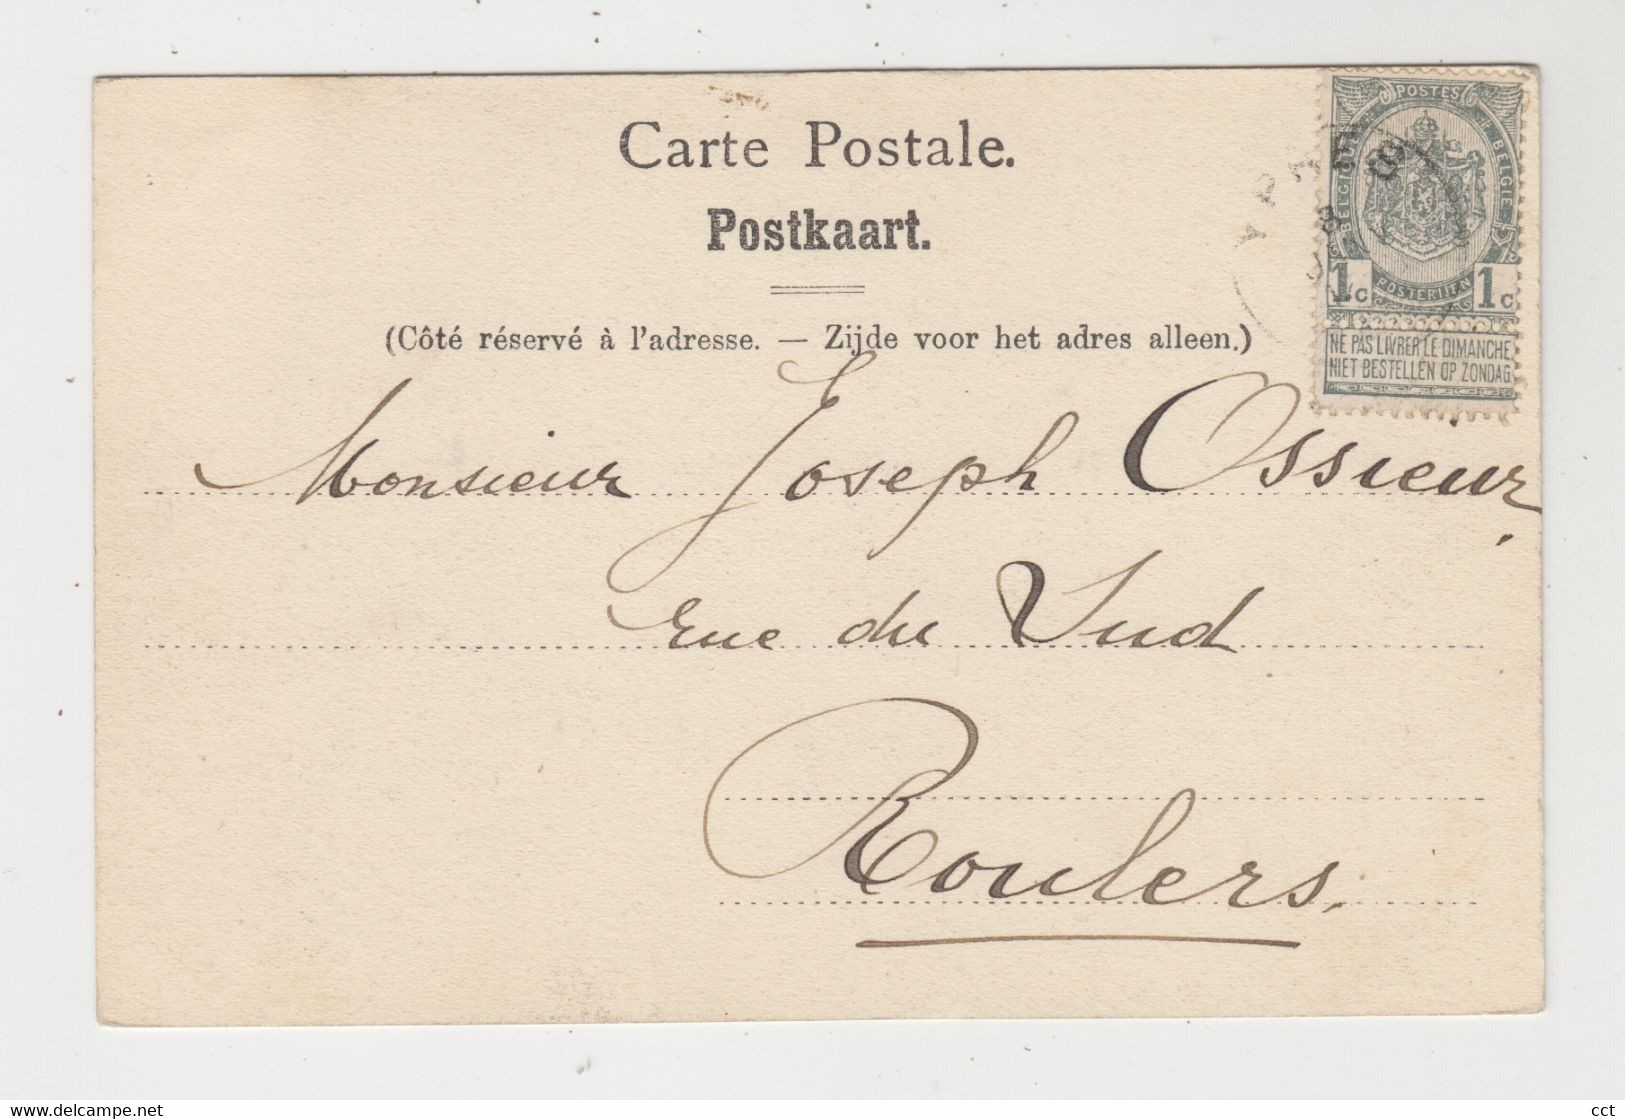 Carte Postale.
Postkaart.
(Côté réservé à l'adresse. — Zijde voor het adres alleen.)
POSTES
BELGIQUE
BELGIE
1c POSTERIJEN 1c
NE PAS LIVRER LE DIMANCHE
NIET BESTELLEN OP ZONDAG
Monsieur Joseph Ossieur.
rue du Sud
Roulers.
delcampe.net
cct